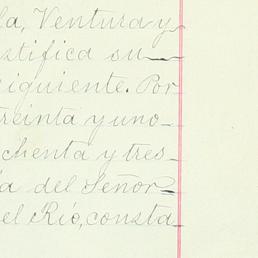 la, Ventura y
stifica su
siguiente. Por
treinta y uno
chenta y tres
ía del Señor
el Río, consta